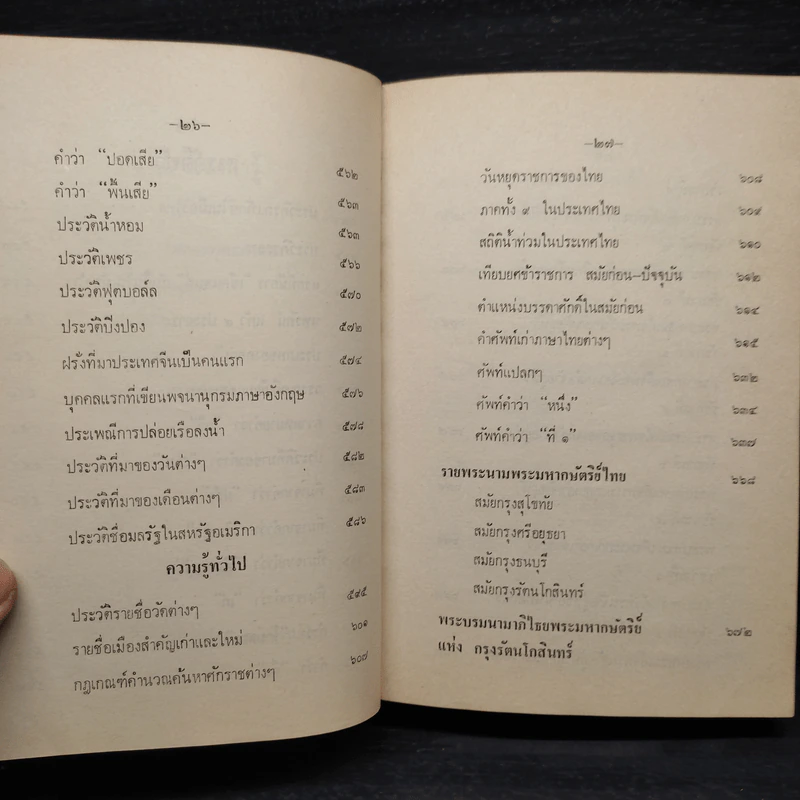 –๒๖–
คำว่า “ปอดเสีย” ๕๖๒
คำว่า “ฟื้นเสีย” ๕๖๓
ประวัติน้ำหอม ๕๖๓
ประวัติเพชร ๕๖๖
ประวัติฟุตบอล์ล ๕๗๐
ประวัติปิงปอง ๕๗๒
ฝรั่งที่มาประเทศจีนเป็นคนแรก ๕๗๔
บุคคลแรกที่เขียนพจนานุกรมภาษาอังกฤษ ๕๗๖
ประเพณีการปล่อยเรือลงน้ำ ๕๗๘
ประวัติที่มาของวันต่างๆ ๕๘๒
ประวัติที่มาของเดือนต่างๆ ๕๘๓
ประวัติชื่อมลรัฐในสหรัฐอเมริกา ๕๘๖
ความรู้ทั่วไป
ประวัติรายชื่อวัดต่างๆ ๕๙๕
รายชื่อเมืองสำคัญเก่าและใหม่ ๖๐๑
กฎเกณฑ์คำนวณค้นหาศักราชต่างๆ ๖๐๗
–๒๗–
วันหยุดราชการของไทย ๖๐๘
ภาคทั้ง ๙ ในประเทศไทย ๖๐๙
สถิติน้ำท่วมในประเทศไทย ๖๑๐
เทียบยศข้าราชการ สมัยก่อน–ปัจจุบัน ๖๑๒
ตำแหน่งบรรดาศักดิ์ในสมัยก่อน ๖๑๔
คำศัพท์เก่าภาษาไทยต่างๆ ๖๑๕
ศัพท์แปลกๆ ๖๓๒
ศัพท์คำว่า “หนึ่ง” ๖๓๔
ศัพท์คำว่า “ที่ ๑” ๖๓๗
รายพระนามพระมหากษัตริย์ไทย ๖๖๘
สมัยกรุงสุโขทัย
สมัยกรุงศรีอยุธยา
สมัยกรุงธนบุรี
สมัยกรุงรัตนโกสินทร์
พระบรมนามาภิไธยพระมหากษัตริย์ ๖๗๒
แห่ง กรุงรัตนโกสินทร์